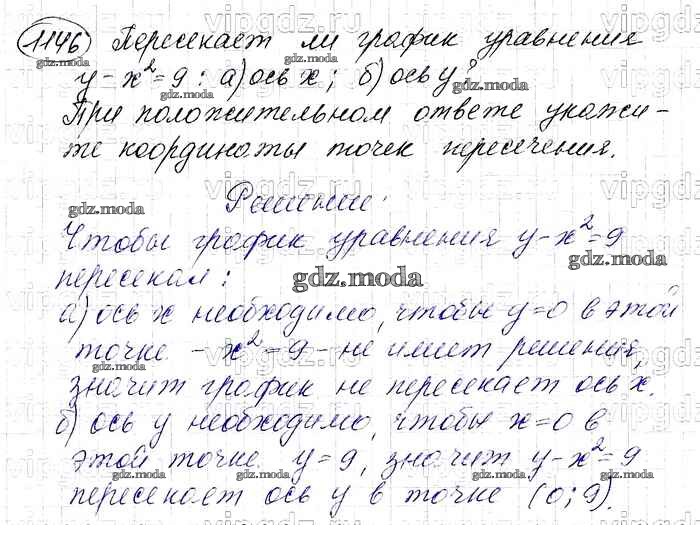 1146 Пересекает ли график уравнения
y - x² = 9 : а) ось x ; б) ось y ?
При положительном ответе укажи-
те координаты точек пересечения.
Решение:
Чтобы график уравнения y - x² = 9
пересекал:
а) ось x необходимо, чтобы y = 0 в этой
точке - x² = 9 - не имеет решения,
значит график не пересекает ось x.
б) ось y необходимо, чтобы x = 0 в
этой точке y = 9, значит y - x² = 9
пересекает ось y в точке (0; 9).
gdz.moda
vipgdz